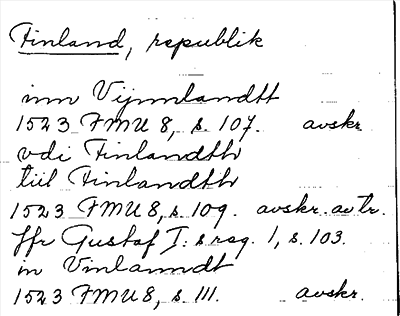 Finland, republik
inn Vijnnlandtt
1523 FMU 8, s. 107. avskr.
vdi Finlandth
till Finlandth
1523 FMU 8, s. 109. avskr. av tr.
Jfr Gustaf I:s reg. 1, s. 103.
in Vinlanndt
1523 FMU 8, s. 111. avskr.